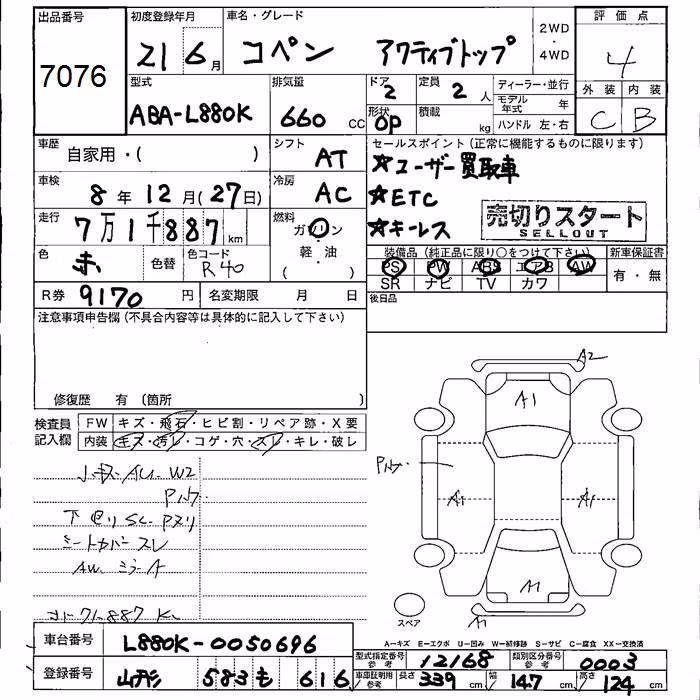 出品番号 初度登録年月 車名・グレード 2WD・4WD 評価点
7076 21 6月 コペン アクティブトップ 4
型式 排気量 ドア 定員 ディーラー・並行 外装 内装
ABA-L880K 660 CC 2 2 人 モデル年式 年 C B
形状 積載 ハンドル 左・右
OP kg
車歴 自家用・( ) シフト AT セールスポイント(正常に機能するものに限ります)
☆ユーザー買取車
車検 8年12月(27日) 冷房 AC ☆ETC
走行 7万1千887km 燃料 ガソリン(軽・油) ☆キーレス
売切りスタート
SELLOUT
色 赤 色替 色コード R40 装備品(純正品に限り○をつけて下さい) 新車保証書
PS PW ABS エアB AW 有・無
SR ナビ TV カワ
R券 9170円 名変期限 月 日 後日品
注意事項申告欄(不具合内容等は具体的に記入して下さい)
修復歴 有(箇所 )
検査員記入欄 FW キズ・飛石・ヒビ割・リペア跡・X要
内装 キズ・汚レ・コゲ・穴・スレ・キレ・破レ
A2
A1
A1 A1
A1
A1
スペア
小キズ AU. W2
下回り SC. Pヌリ
シートカバー スレ
AW. ミラーA
コト 71887 K
A−キズ E−エクボ U−凹み W−補修跡 S−サビ C−腐食 XX−交換済
車台番号 L880K-0050696
型式指定番号 参考 12168 類別区分番号 参考 0003
登録番号 山形 583 も 616
車庫証明用 参考 長さ 339cm 幅 147cm 高さ 124cm